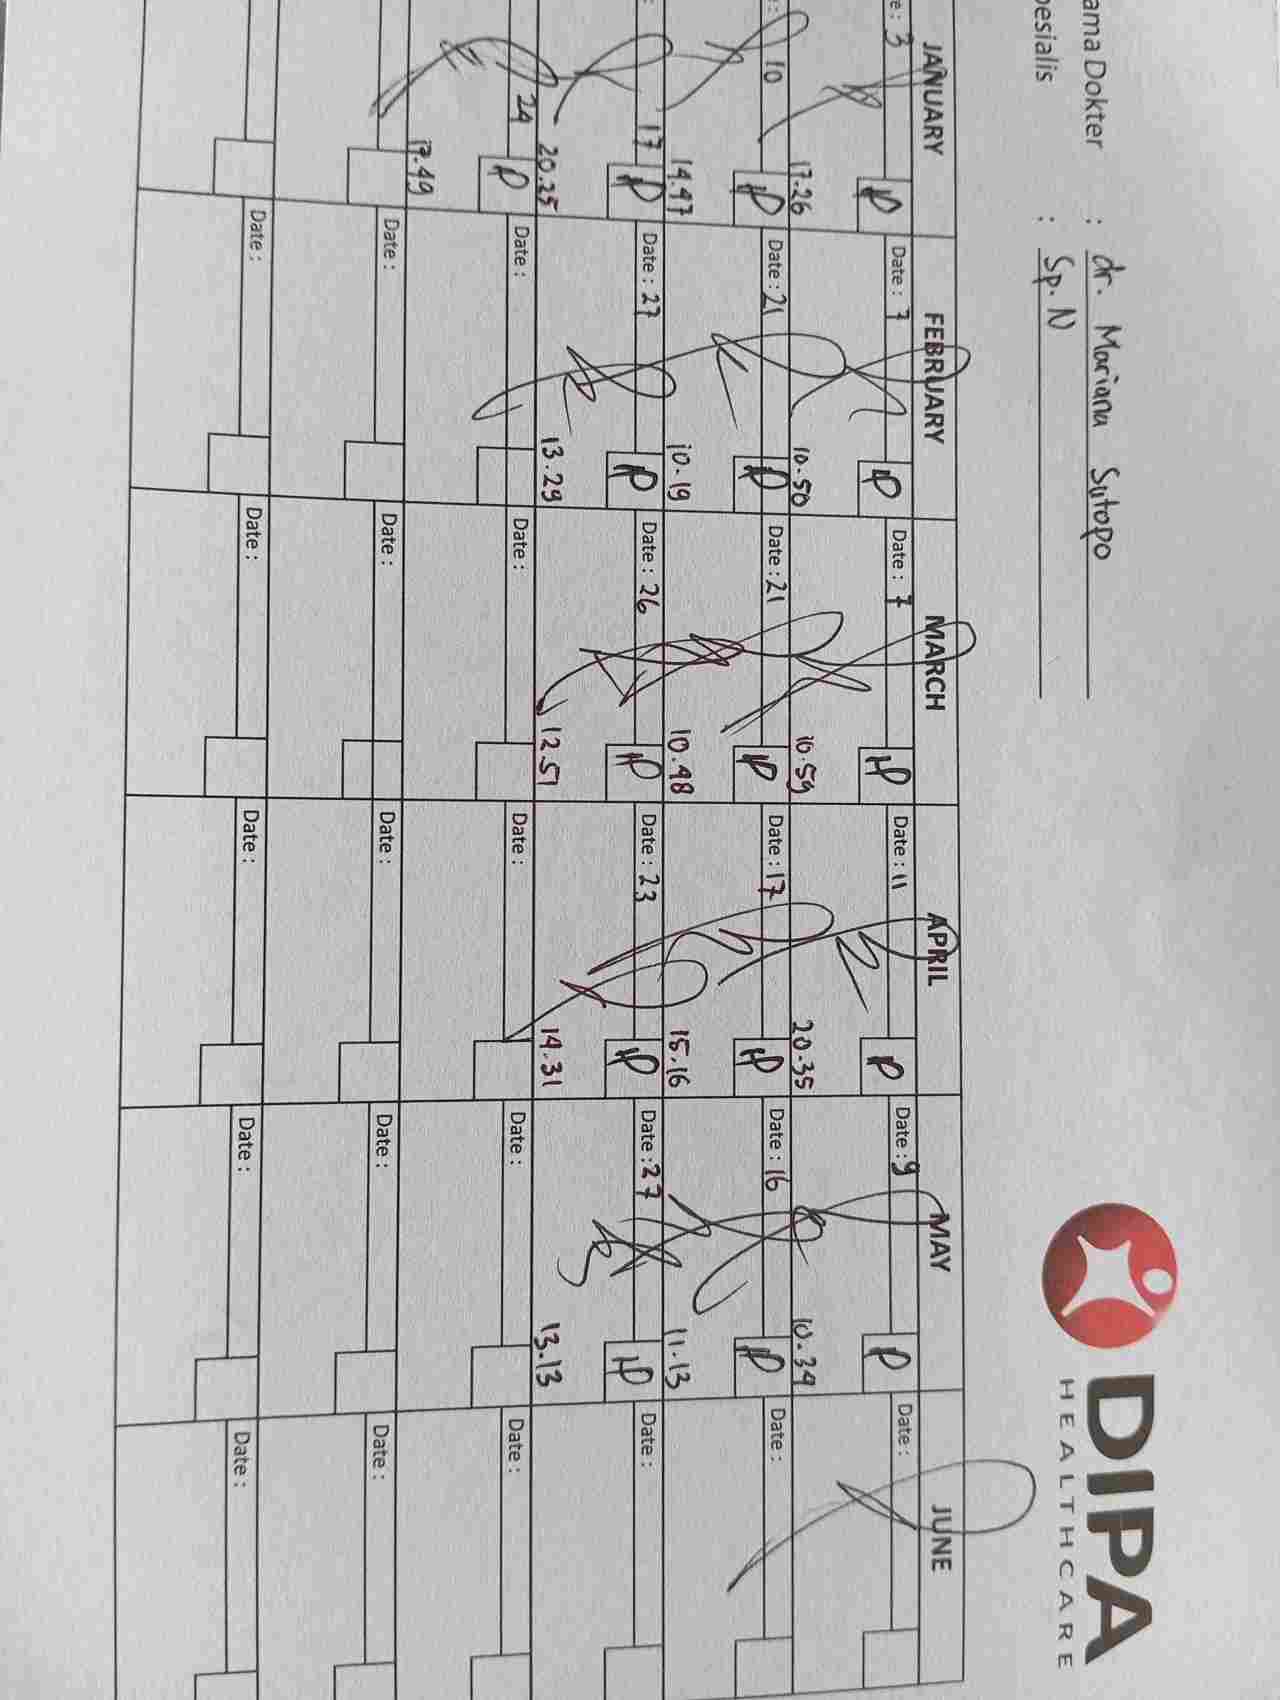 DIPA
HEALTHCARE
ama Dokter : dr. Mariana Sutopo
pesialis : Sp. N
JANUARY FEBRUARY MARCH APRIL MAY JUNE
e : 3 Date : 7 Date : 7 Date : 11 Date : 9 Date :
17.26 10.50 10.59 20.35 10.34
: 10 Date : 21 Date : 21 Date : 17 Date : 16 Date :
14.47 10.19 10.48 15.16 11.13
: 17 Date : 27 Date : 26 Date : 23 Date : 27 Date :
20.25 13.29 12.51 14.31 13.13
24 Date : Date : Date : Date : Date :
17.49
Date : Date : Date : Date : Date :
Date : Date : Date : Date : Date :